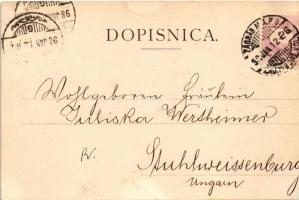 DOPISNICA.
Wohlgeboren Fräulein
Juliska Wertheimer
Stuhlweissenburg
Ungarn